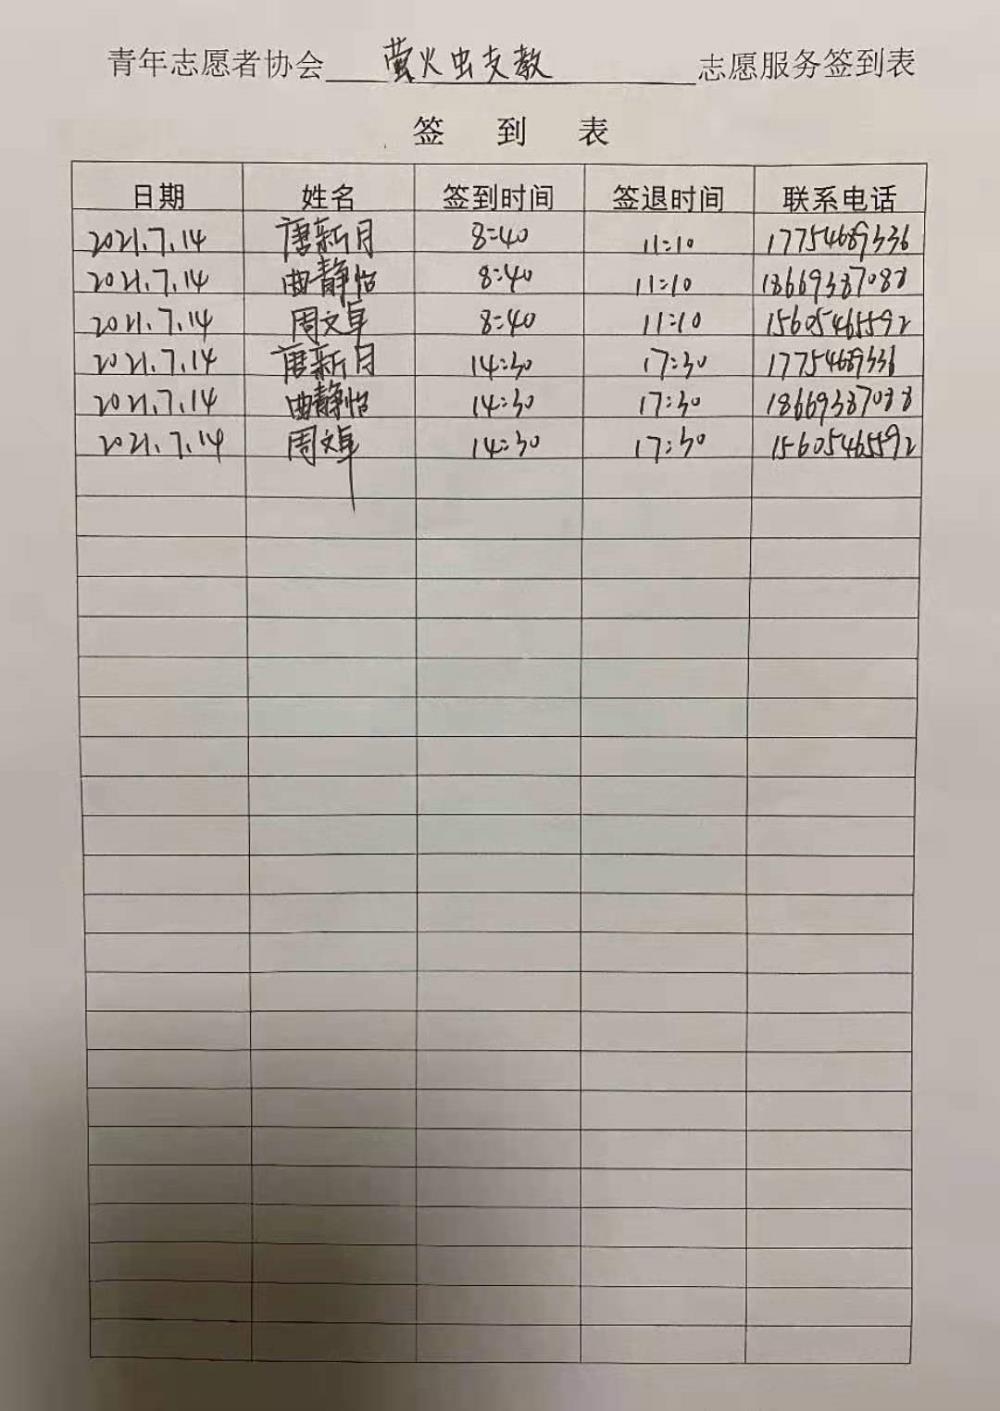 青年志愿者协会 萤火虫支教 志愿服务签到表
签 到 表
日期 姓名 签到时间 签退时间 联系电话
2021.7.14 唐新月 8:40 11:10 17754689336
2021.7.14 曲静怡 8:40 11:10 18669387088
2021.7.14 周文卓 8:40 11:10 15605465592
2021.7.14 唐新月 14:30 17:30 17754689336
2021.7.14 曲静怡 14:30 17:30 18669387088
2021.7.14 周文卓 14:30 17:30 15605465592